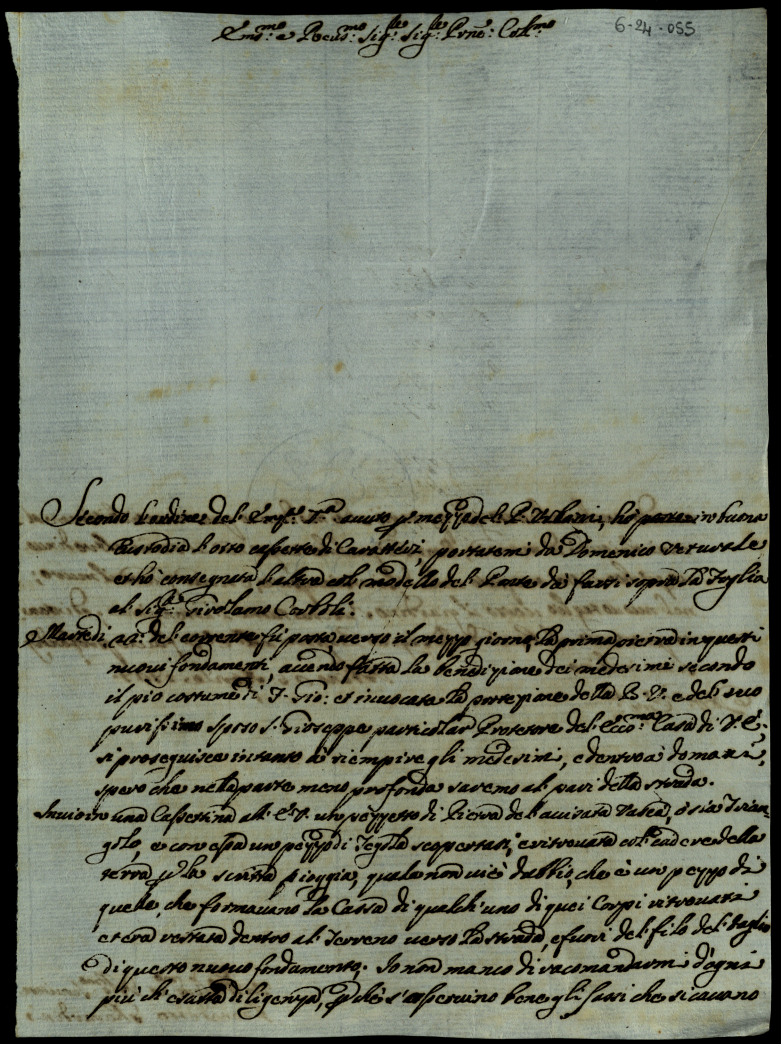 6-24-055
Ill.mo e Sig.r Sig.r Pron: Col.mo
Secondo l'ordine del avuto p mezzo del P. ho in buona
Custodia l'otto cassette di portatemi da Domenico
et hò consegnata l'altra col modello del Ponte da farsi sopra la Foglia
al Sig.r Girolamo
Martedi 22 del corrente fù posta, verso il mezzo giorno, la prima pietra in questi
nuovi fondamenti, avendo fatta la benedizione dei medesimi secondo
il pio costume di S. Gio: et invocata la protezione della B. V. e del suo
purissimo sposo S. Giuseppe particolar Protettore del Ecc.ma Casa di V. E.;
si proseguisce intanto à riempire gli medesimi, e dentro à domani,
spero che nella parte meno profonda saremo al pari della strada.
Invio in una Cassettina all' E. V. un pezzetto di Pietra del avisata Vasca, ò sia Trian-
golo, e con essa un pezzo di Tegola scopertasi, e ritrovata col cadere della
terra p la scritta pioggia, quale non vi è dubbio, che è un pezzo di
quelle, che formavano la Cassa di qualch'uno di quei Corpi ritrovati
et era restata dentro al Terreno verso la strada, e fuori del filo del taglio
di questo nuovo fondamento. Io non manco di racomandarmi d'ogni
più ch' esatta diligenza, p chè s'osservino bene gli sassi che si cavano